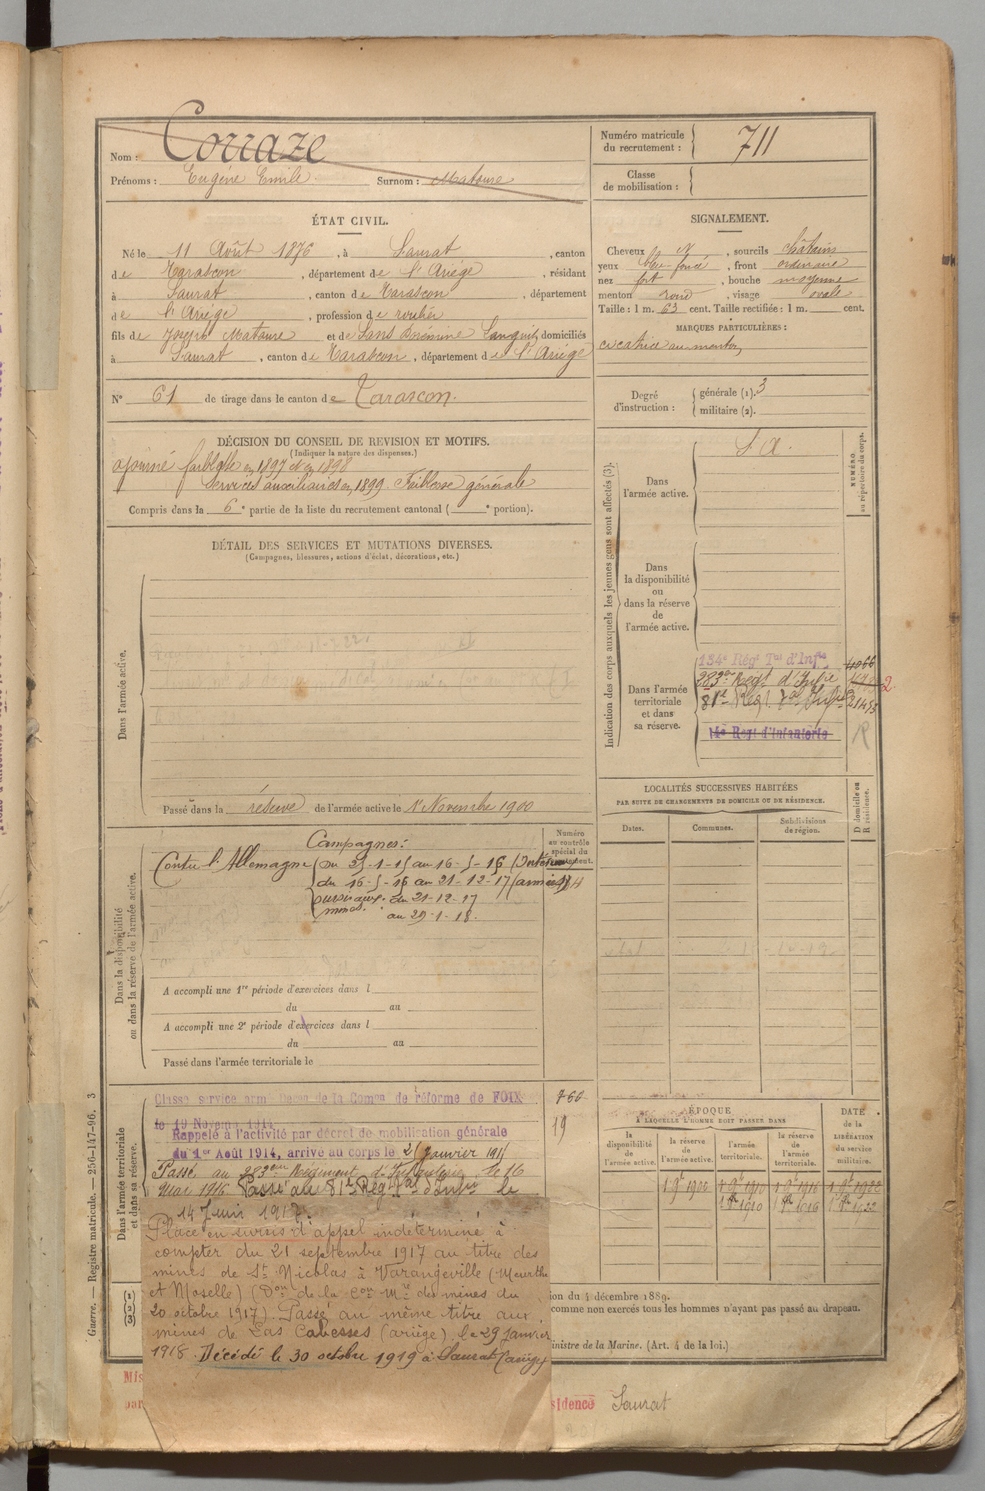 Nom : Corraze
Prénoms : Eugène Emile Surnom : Matoure
Numéro matricule du recrutement : 711
Classe de mobilisation :
ÉTAT CIVIL.
Né le 11 Août 1876, à Saurat, canton
de Tarascon, département de l'Ariège, résidant
à Saurat, canton de Tarascon, département
de l'Ariège, profession de roulier
fils de Joseph Matoure et de Sans domiciliés
à Saurat, canton de Tarascon, département de l'Ariège
N° 61 de tirage dans le canton de Tarascon.
SIGNALEMENT.
Cheveux , sourcils châtains
yeux bleu foncé, front ordinaire
nez fort, bouche moyenne
menton rond, visage ovale
Taille : 1 m. 63 cent. Taille rectifiée : 1 m. cent.
MARQUES PARTICULIÈRES :
cicatrice au menton
Degré d'instruction : générale (1). 3
militaire (2).
DÉCISION DU CONSEIL DE REVISION ET MOTIFS.
(Indiquer la nature des dispenses.)
ajourné faiblesse en 1897 et en 1898
services auxiliaires en 1899 Faiblesse générale
Compris dans la 6e partie de la liste du recrutement cantonal ( e portion).
DÉTAIL DES SERVICES ET MUTATIONS DIVERSES.
(Campagnes, blessures, actions d'éclat, décorations, etc.)
Dans l'armée active.
Passé dans la réserve de l'armée active le 1er Novembre 1900
Indication des corps auxquels les jeunes gens sont affectés (3).
NUMÉRO au répertoire du corps.
Dans l'armée active.
S A.
Dans la disponibilité ou dans la réserve de l'armée active.
Dans l'armée territoriale et dans sa réserve.
134e Régt Tal d'Infie
283me Régt d'Infie
81e Régt Tal Infie
14e Regt d'Infanterie
LOCALITÉS SUCCESSIVES HABITÉES
PAR SUITE DE CHANGEMENTS DE DOMICILE OU DE RÉSIDENCE.
Dates. Communes. Subdivisions de région. D domicile ou R résidence.
Dans la disponibilité ou dans la réserve de l'armée active.
Numéro au contrôle spécial du recrutement.
Campagnes :
Contre l'Allemagne du 25-1-15 au 16-5-16 (Intérieur)
du 16-5-16 au 21-12-17 (armées)
sursis aux mines. du 21-12-17
au 29-1-18.
A accompli une 1re période d'exercices dans l
du au
A accompli une 2e période d'exercices dans l
du au
Passé dans l'armée territoriale le
Dans l'armée territoriale et dans sa réserve.
Classé service armé Décon de la Comon de réforme de FOIX
le 19 Novemb. 1914
766
19
Rappelé à l'activité par décret de mobilisation générale
du 1er Août 1914, arrivé au corps le 25 Janvier 1915
Passé au 283eme Régiment d'Infanterie le 16
Mai 1916 Passé au 81e Régt Tal d'Infie le
14 Juin 1917.
Placé en sursis d'appel indéterminé à
compter du 21 septembre 1917 au titre des
mines de St Nicolas à Varangeville (Meurthe
et Moselle) (Don de la Con Mre des mines du
20 octobre 1917). Passé au même titre aux
mines de Las Cabesses (Ariège) le 29 Janvier
1918. Décédé le 30 octobre 1919 à Saurat (Ariège)
ÉPOQUE
À LAQUELLE L'HOMME DOIT PASSER DANS
la disponibilité de l'armée active. la réserve de l'armée active. l'armée territoriale. la réserve de l'armée territoriale.
DATE de la LIBÉRATION du service militaire.
1 9e 1900 1 9e 1910 1 9e 1916 1 9e 1922
ion du 4 décembre 1889.
comme non exercés tous les hommes n'ayant pas passé au drapeau.
inistre de la Marine. (Art. 4 de la loi.)
Guerre. — Registre matricule. — 256-147-96. 3
Mis
par
sidence Saurat